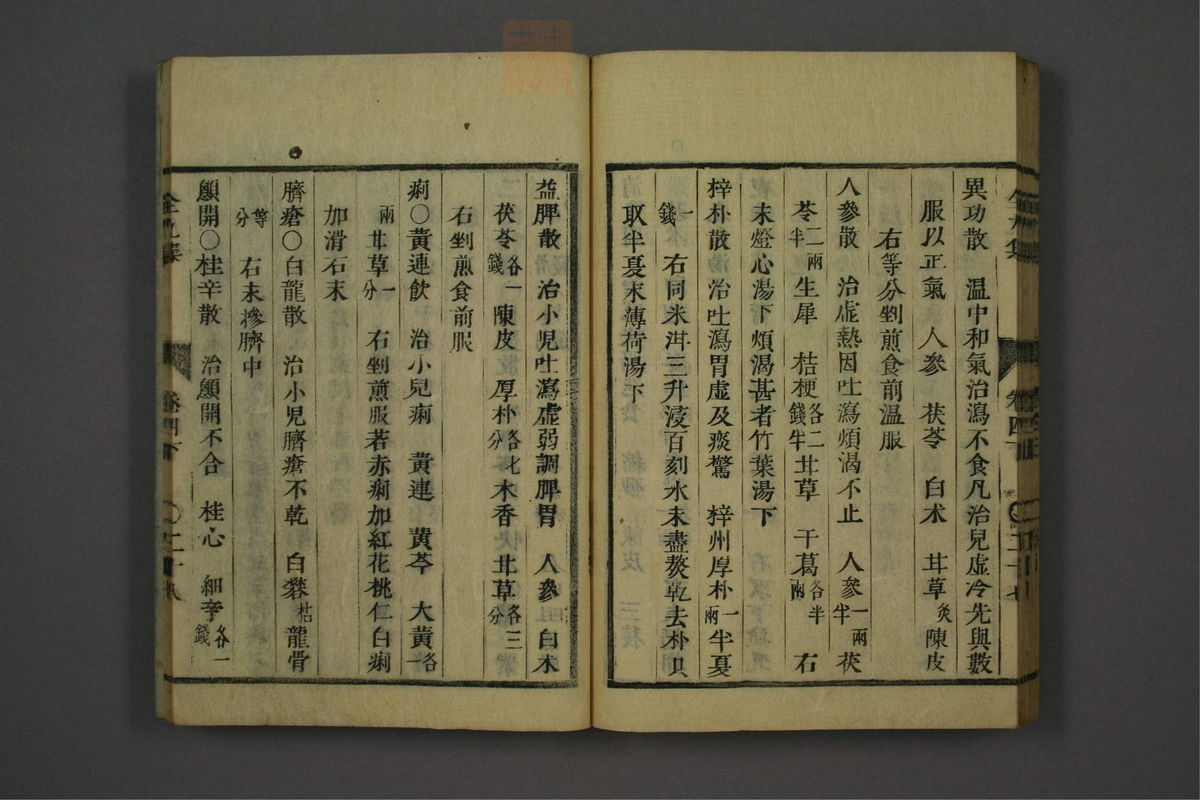 異功散 溫中和氣治瀉不食凡治兒虛冷先與數
服以正氣 人參 茯苓 白朮 甘草炙陳皮
右等分剉煎食前溫服
人參散 治虛熱因吐瀉煩渴不止 人參一兩半茯
苓二兩半生犀 桔梗各二錢半甘草 干葛各半兩 右
末燈心湯下煩渴甚者竹葉湯下
梓朴散 治吐瀉胃虛及痰驚 梓州厚朴一兩半夏
一錢 右同米泔三升浸百刻水未盡熬乾去朴只
取半夏末薄荷湯下
益脾散 治小兒吐瀉虛弱調脾胃 人參 白朮
茯苓各一錢 陳皮 厚朴各七分木香 甘草各三分
右剉煎食前服
痢〇黃連飲 治小兒痢 黃連 黃芩 大黃各一
兩 甘草一分 右剉煎服若赤痢加紅花桃仁白痢
加滑石末
臍瘡〇白龍散 治小兒臍瘡不乾 白礬枯龍骨
等分 右末摻臍中
顖開〇桂辛散 治顖開不合 桂心 細辛各一錢
卷四下
二十八